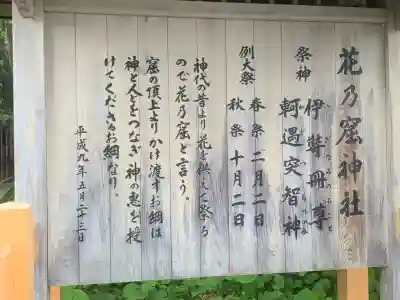 花乃窟神社
祭神
伊弉冊尊
いざなみのみこと
軻遇突智神
かぐつちのかみ
例大祭
春祭 二月二日
秋祭 十月二日
神代の昔より花を供えて祭る
ので花乃窟と言う。
窟の頂上よりかけ渡すお綱は
神と人とをつなぎ神の恵を授
けてくださるお綱なり。
平成九年五月二十三日